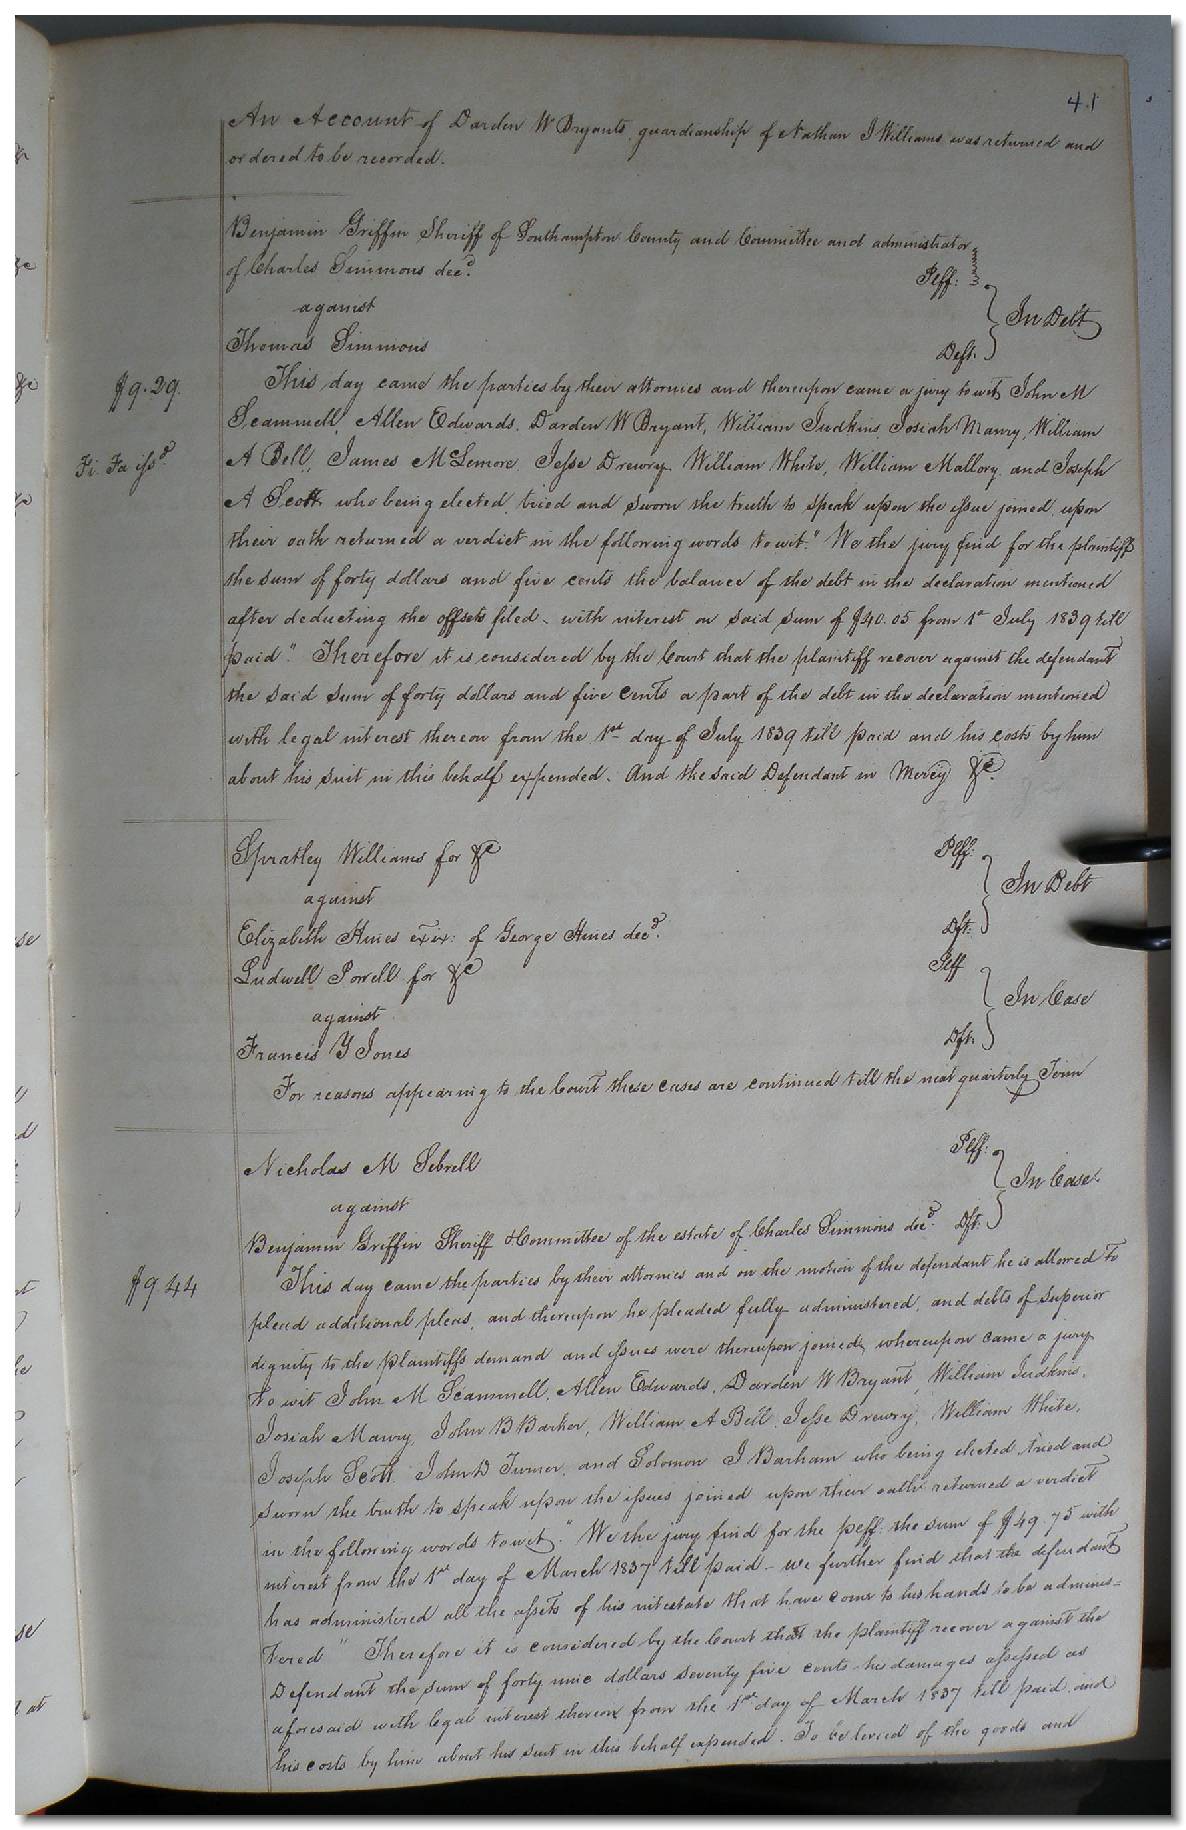 41
An Account of Darden W Bryants guardianship of Nathan J Williams was returned and
ordered to be recorded.
Benjamin Griffin Sheriff of Southampton County and Committee and administrator
of Charles Simmons decd. Plff:
against
In Debt
Thomas Simmons Deft.
$9.29.
This day came the parties by their attornies and thereupon came a jury to wit John M
Scammell, Allen Edwards, Darden W Bryant, William Judkins Josiah Maury, William
Fi. Fa issd.
A Bell, James McLemore, Jesse Drewry William White, William Mallory and Joseph
A Scott who being elected, tried and sworn the truth to speak upon the issue joined upon
their oath returned a verdict in the following words to wit "We the jury find for the plaintiff
the sum of forty dollars and five cents the balance of the debt in the declaration mentioned
after deducting the offsets filed - with interest on said sum of $40.05 from 1st July 1839 till
paid". Therefore it is considered by the Court that the plaintiff recover against the defendant
the said sum of forty dollars and five cents a part of the debt in the declaration mentioned
with legal interest thereon from the 1st day of July 1839 till paid and his costs by him
about his suit in this behalf expended. And the said Defendant in Mercy &c.
Spratley Williams for &c Plff:
against
In Debt
Elizabeth Hines exix: of George Hines decd. Dft:
Ludwell Powell for &c Plff
against
In Case
Francis Y Jones Dft.
For reasons appearing to the Court these cases are continued till the next quarterly Term
Nicholas M Sebrell Plff:
In Case.
against
Benjamin Griffin Sheriff &Committee of the estate of Charles Simmons decd. Dft:
$9.44
This day came the parties by their attornies and on the motion of the defendant he is allowed to
plead additional pleas, and thereupon he pleaded fully administered, and debts of superior
dignity to the plaintiffs demand and issues were thereupon joined, whereupon came a jury
to wit John M Scammell, Allen Edwards, Darden W Bryant, William Judkins,
Josiah Maury, John B Barker, William A Bell Jesse Drewry, William White,
Joseph Scott John D Turner, and Solomon J Barham who being elected tried and
sworn the truth to speak upon the issues joined upon their oath returned a verdict
in the following words to wit. "We the jury find for the plff: the sum of $49.75 with
interest from the 1st day of March 1837 till paid - we further find that the defendant
has administered all the assets of his intestate that have come to his hands to be adminis-
tered" Therefore it is considered by the Court that the plaintiff recover against the
Defendant the sum of forty nine dollars seventy five cents his damages assessed as
aforesaid with legal interest thereon from the 1st day of March 1837 till paid, and
his costs by him about his suit in this behalf expended. To be levied of the goods and